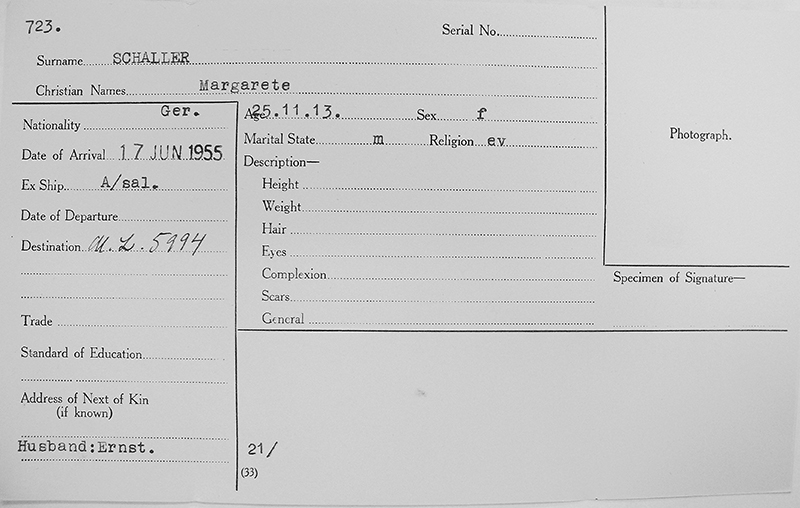 723.
Serial No.
Surname SCHALLER
Christian Names Margarete
Nationality Ger.
Date of Arrival 17 JUN 1955
Ex Ship A/sal.
Date of Departure
Destination M. L. 5994
Trade
Standard of Education
Address of Next of Kin
(if known)
Husband:Ernst.
Age 25.11.13. Sex f
Marital State m Religion ev
Description—
Height
Weight
Hair
Eyes
Complexion
Scars
General
21/
(33)
Photograph.
Specimen of Signature—